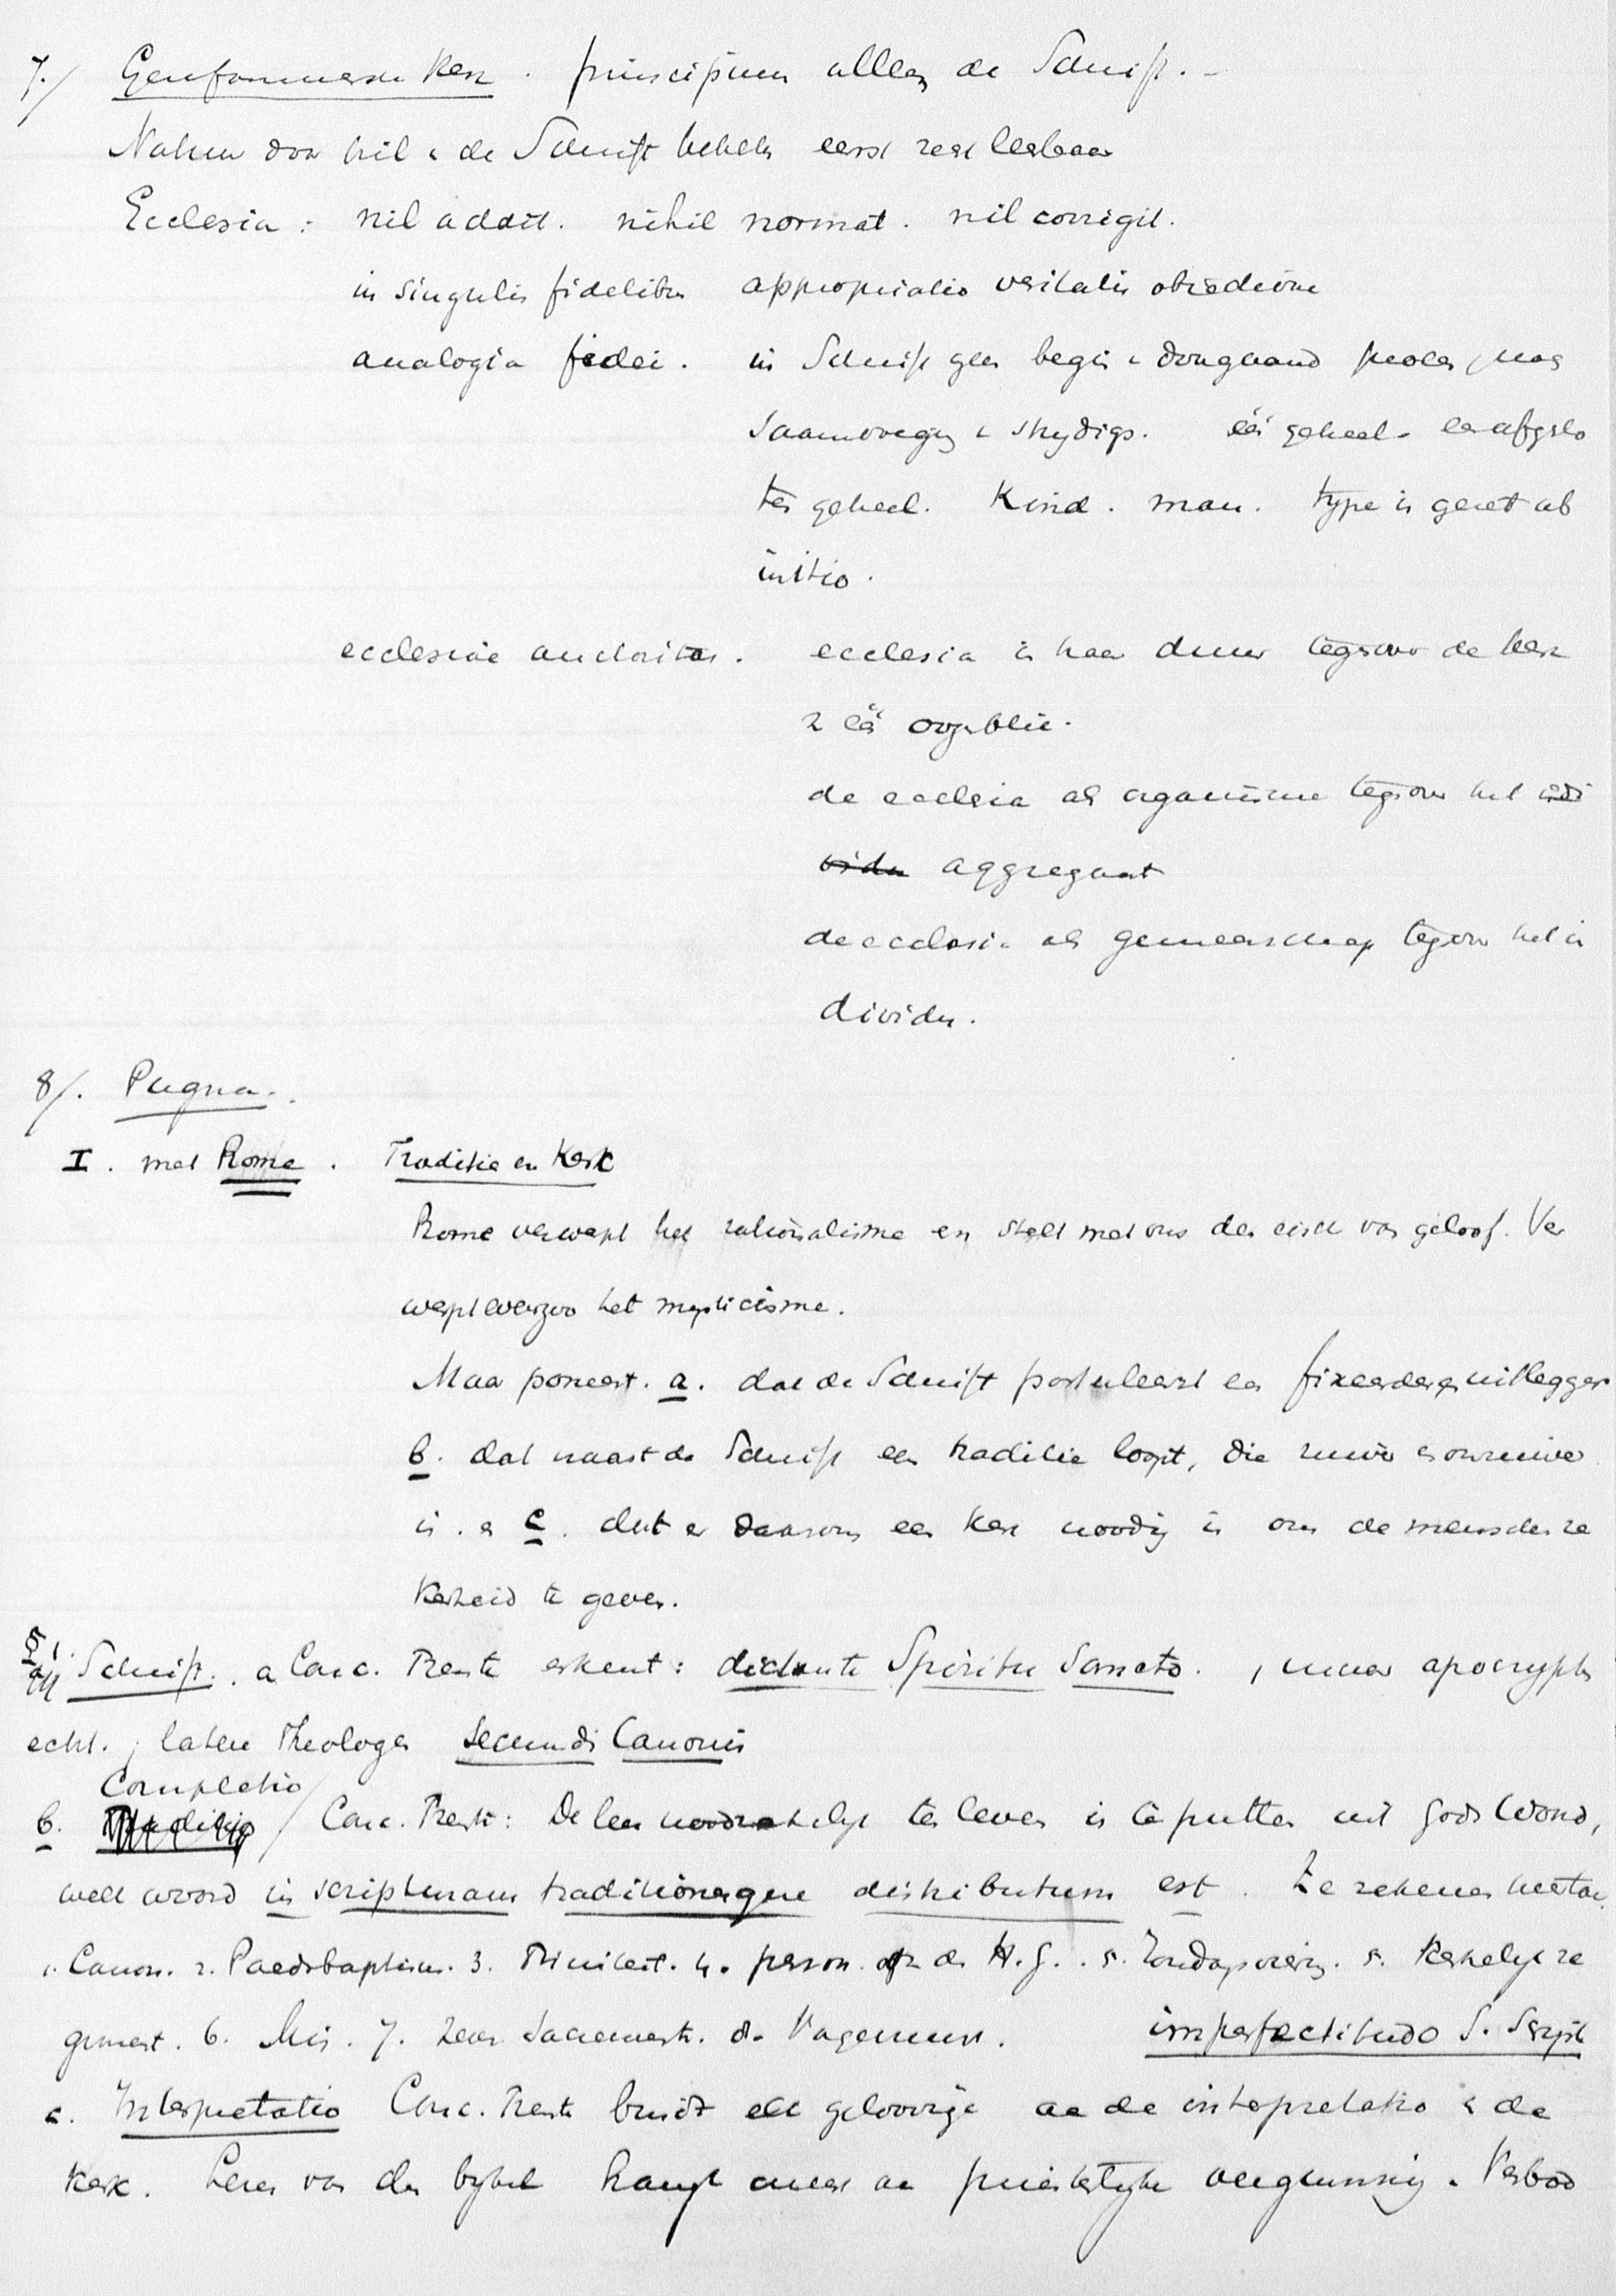 7./ Gereformeerde Kerk. principium alleen de Schrift. -
Natuur door hil & de Schrift behelst eerst recht leesbaar
Ecclesia: nil addit. nihil normat. nil corrigit.
in singulis fidelibus appropriatio veritatis
analogia fidei. in Schrift geen begin &
saamvoeging & één geheel. een afgeslo
ten geheel. Kind. man. type is gezet ab
initio.
ecclesiae auctoritas. ecclesia in haar duur tegenover de kerk
in één oogenblik.
de ecclesia als organisme tegenover het indi
aggregaat
de ecclesia als gemeenschap tegenover het in
dividu.
8/. Pugna.
I. met Rome. Traditie en Kerk
Rome verwerpt het rationalisme en stelt met ons den eisch van geloof. Ver
werpt evenzoo het mysticisme.
Maar poneert. a. dat de Schrift postuleert een fixeerderen uitlegger
b. dat naast de Schrift een traditie loopt, die zuiver en onzuiver
is. en c. dat er daarom een Kerk noodig is om de menschen ze
kerheid te geven.
Schrift. a Conc. Trente erkent: dictante Spiritu Sancto. , maar apocryphen
echt. ; latere Theologen secundi Canonis
Completio
b. / Conc. Trent: De leer noodzakelijk ten leven is te putten uit Gods Woord,
welk woord in scripturam traditionemque distributum est. Ze rekenen hiertoe
1. Canon. 2. Paedobaptism. 3. Triniteit. 4. persoon. de H.G.. 5. Zondagsviering. 5. Kerkelijk re
giment. 6. Mis. 7. zeven Sacrament. 8. Vagevuur. imperfectitudo S. Script
c. Interpretatio Conc. Trente bindt elk geloovige aan de interpretatio & de
Kerk. Lezen van den bijbel hangt meest aan priesterlijke vergunning. Verbod